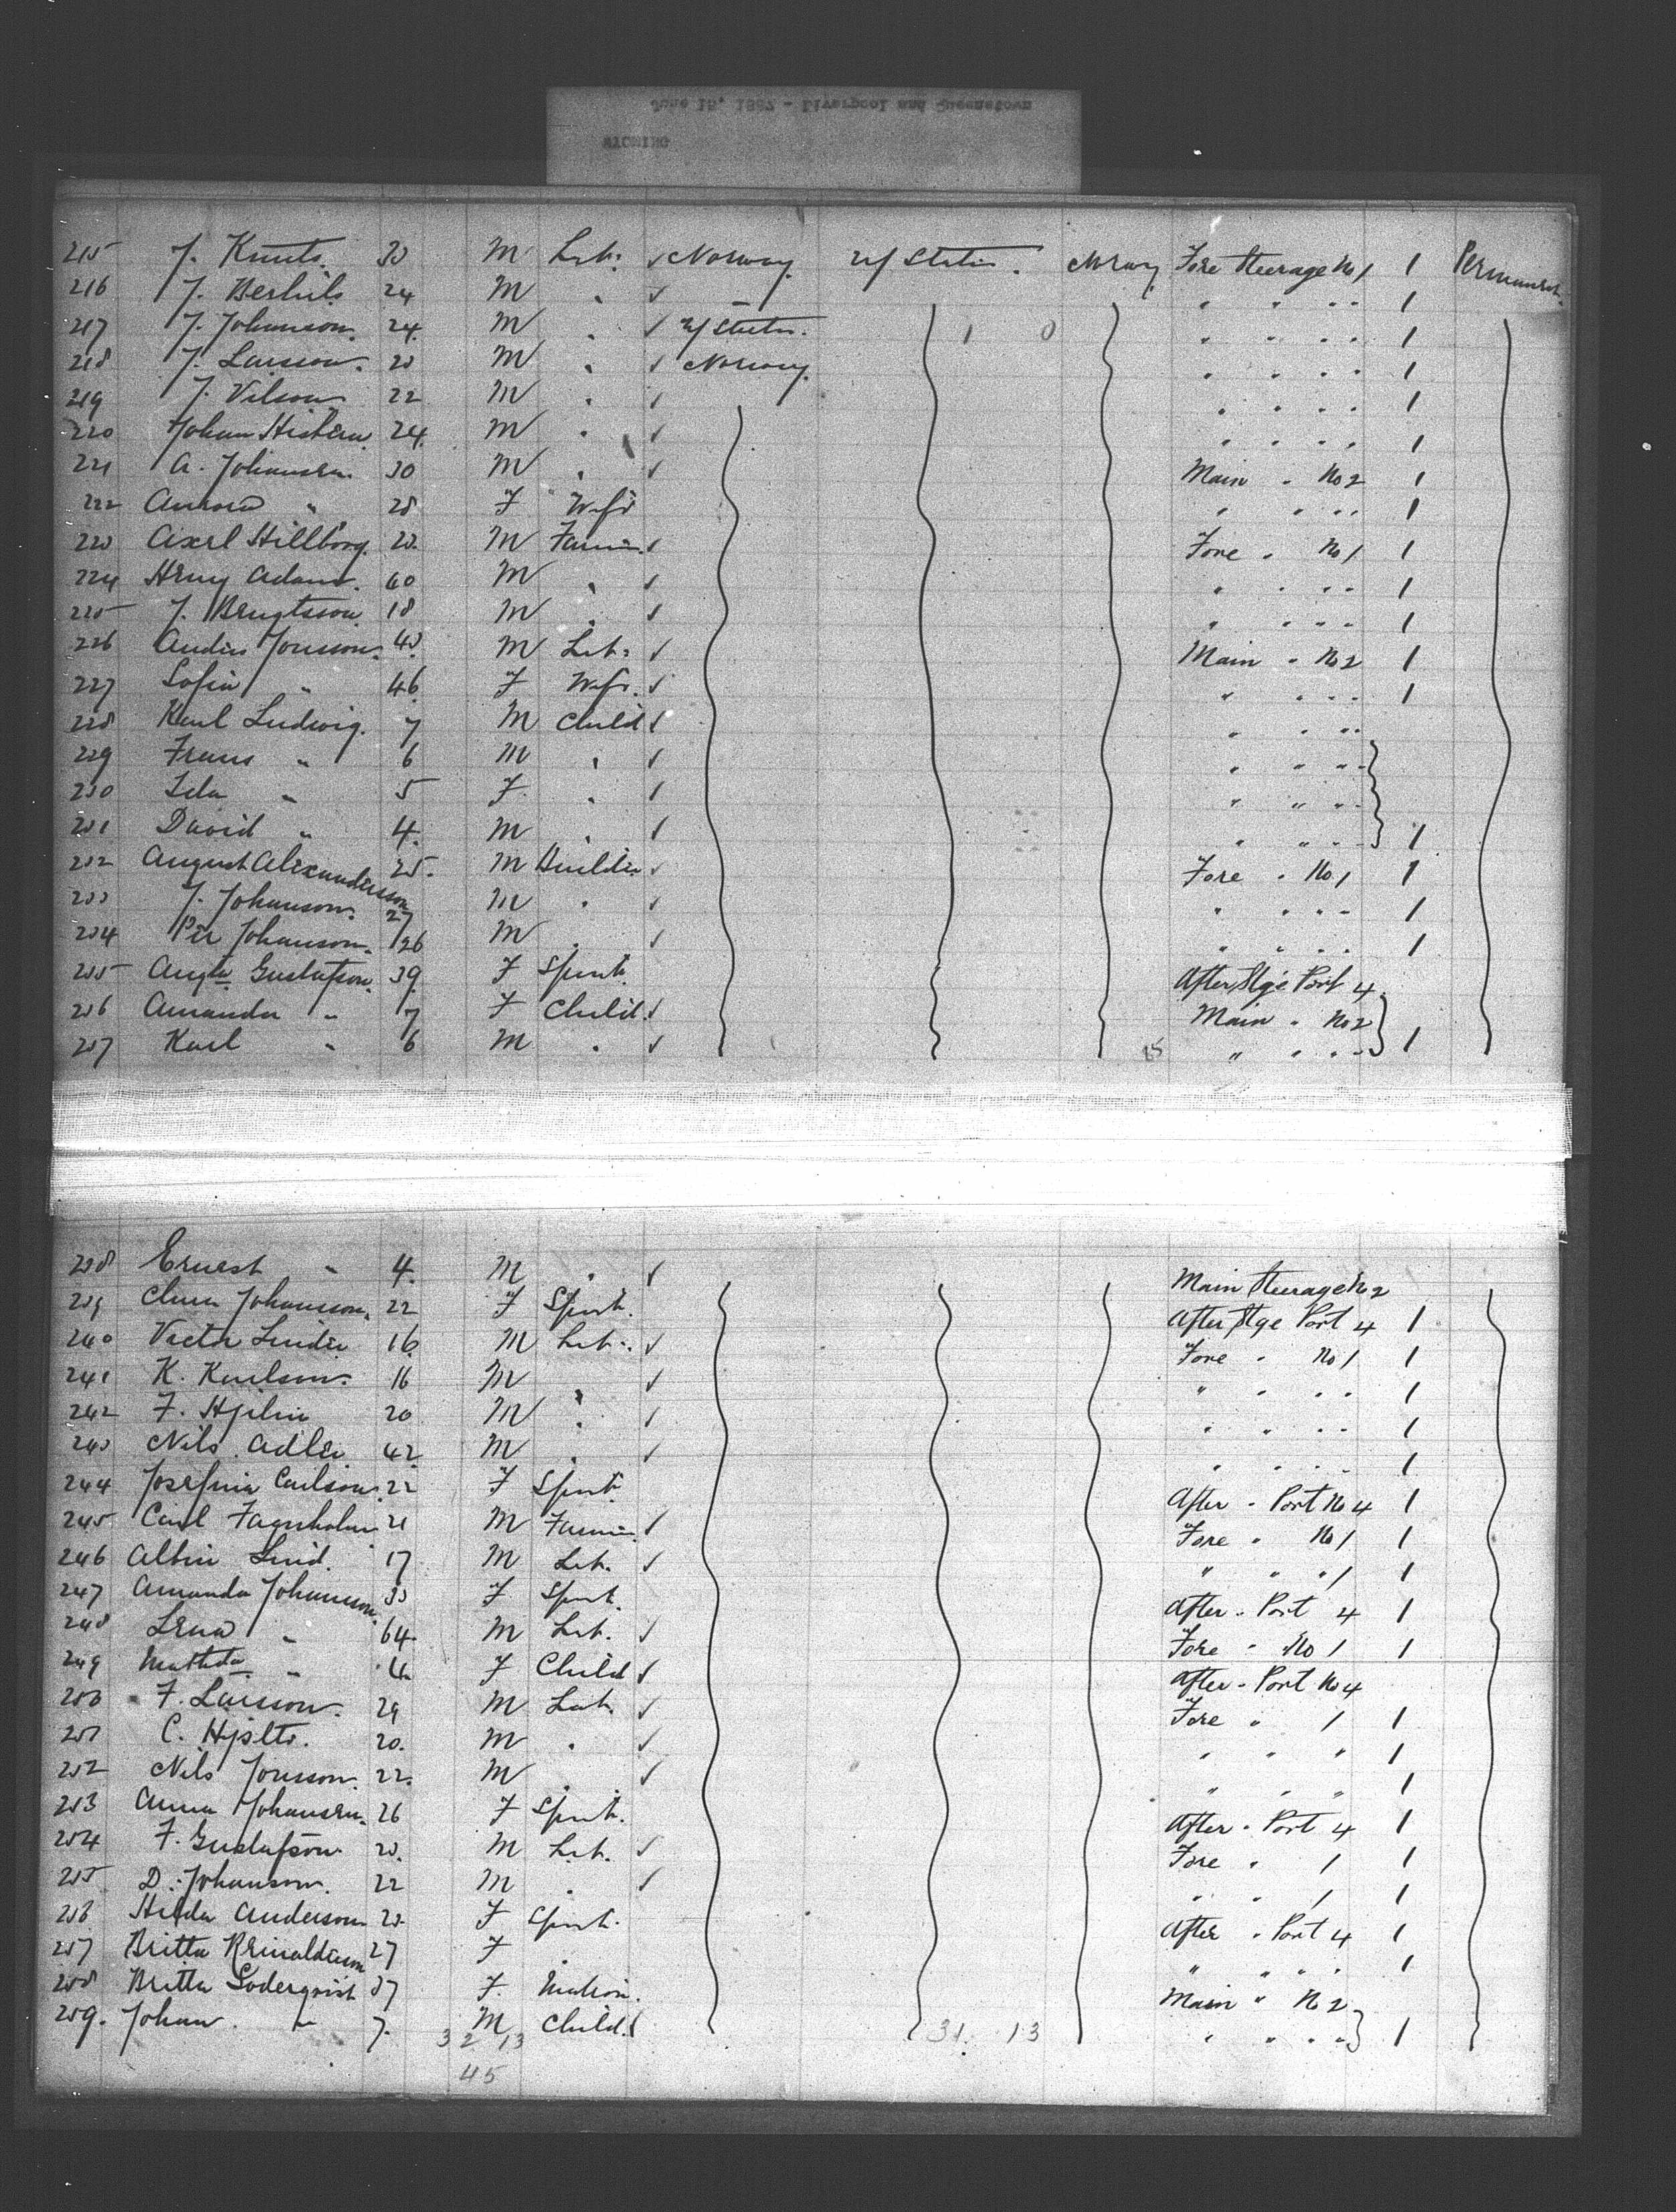 June 15, 1887 - Liverpool and Queenstown
WYOMING
215 J. Knuts. M Lab: ✓ Norway U/States. Norway Fore Steerage No 1 1 Permanent.
216 J. Berhils 24 M " ✓ " " " " 1
217 J. Johanson. 24. M " ✓ U/States. 1 0 " " " " 1
218 J. Larsson. M " ✓ Norway. " " " " 1
219 J. Nilson 22 M " ✓ " " " " 1
220 Johan 24. M " ✓ " " " " 1
221 A. Johansen. 30 M " ✓ Main " No 2 1
222 Aurora " 28 F Wife " " " " 1
223 Axel Hillborg. M Farmer ✓ Fore " No 1 1
224 Henry Adams. 60 M " ✓ " " " " 1
225 J. Bengtsson 18 M " ✓ " " " " 1
226 Andres Jonsson. M Lab: ✓ Main " No 2 1
227 Sofia " 46 F Wife. ✓ " " " " 1
228 Karl Ludwig. 7 M Child ✓ " " " "
229 Frans " 6 M " ✓ " " " "
230 " 5 F. " ✓ " " " "
231 David " 4. M " ✓ " " " " 1
232 August Alexandersson 25. M Builder ✓ Fore " No 1 1
233 J. Johanson. 27 M " ✓ " " " " 1
234 Per Johanson. 26 M " ✓ " " " " 1
235 Augta Gustafson. 39. F Spinst. After Stge Port 4.
236 Amanda " 7 F Child. ✓ Main " No 2
237 Karl " 6 M " ✓ 15 " " " " 1
238 Ernest " 4. M " ✓ Main Steerage No 2
239 Johansson. 22 F Spinst. After Stge Port 4 1
240 Victor Linder 16. M Lab: ✓ Fore " No 1 1
241 K. Karlson. 16 M " ✓ " " " " 1
242 F. Hjelm 20 M " ✓ " " " " 1
243 Nils Adler 42. M " ✓ " " " " 1
244 Josefina Carlson. 22 F Spinst. After " Port No 4 1
245 Carl Fagerholm 21 M Farmer ✓ Fore " No 1 1
246 Albin Lind. 17 M Lab. ✓ " " " 1 1
247 Amanda Johansson. F Spinst. After " Port 4 1
248 Lena " 64. M Lab. ✓ Fore " No 1 1
249 Mathda " 4. F Child ✓ After " Port No 4
250 F. Larsson. 29 M Lab. ✓ Fore " 1 1
251 C. 20. M " ✓ " " " 1
252 Nils Jonsson. 22. M " ✓ " " " 1
253 Anna Johansen. 26 F Spinst. After " Port 4 1
254 F. Gustafson M Lab. ✓ Fore " 1 1
255 D. Johanson. 22 M " ✓ " " 1 1
256 Hilda Anderson F Spinst. After " Port 4 1
257 Britta 27 F " " " " " 1
258 Britta Soderqvist 37 F. Matron. Main " No 2
259. Johan. " 7. M Child. ✓ " " " " 1
32 13 31. 13
45